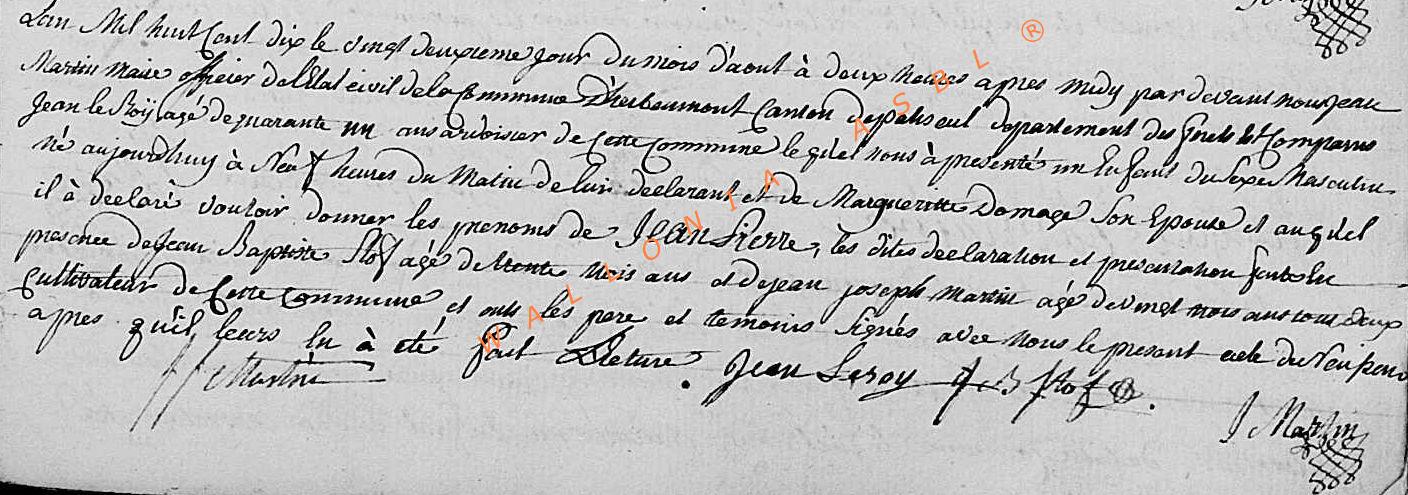 Lan Mil huit Cent dix le vingt deuxieme jour du mois d'aout à deux heures apres midy par devant nous Jean
Martin Maire officier de l'Etat civil de la Commune d'herbeumont Canton de paliseul departement des forets Est Comparus
Jean le Roy agé de quarante un ans ardoisier de Cette Commune le quel nous à presenté un Enfant du Sexe Masculin
né aujourdhuy à Neuf heures du Matin de lui declarant et de Margueritte Domage Son Epouse et auquel
il à declaré vouloir donner les prenoms de Jean Pierre, les dites declaration et presentation faites en
presence de Jean Baptiste agé de trente trois ans et de jean joseph Martin agé de vingt trois ans tous deux
Cultivateur de Cette Commune et onts les pere et temoins Signés avec nous le present acte de
apres qu'il leurs en à été fait Lecture. Jean Leroy J B
J Martin
J Martin
WALLONIA ASBL ®